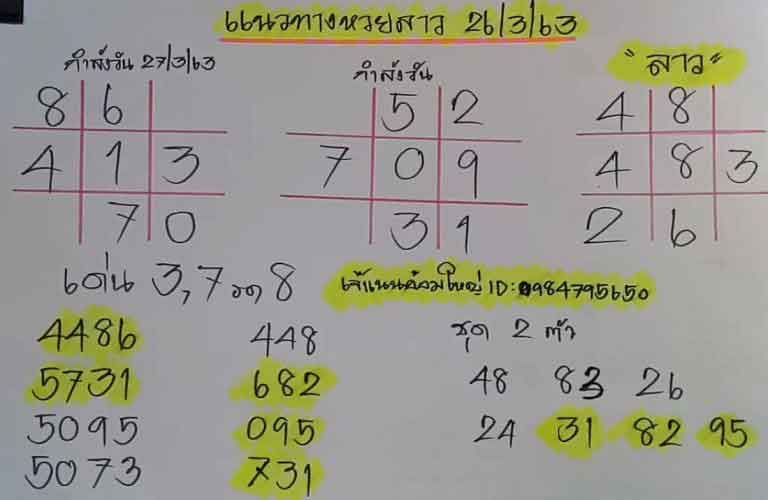 แนวทางหวยลาว 26/3/63
กำลังวัน 27/3/63
8 6
4 1 3
7 0
กำลังวัน
5 2
7 0 9
3 1
"ลาว"
4 8
4 8 3
2 6
เด่น 3,7 รูด 8
4486
5731
5095
5073
448
682
095
731
เจ๊แนนอ้อมใหญ่ ID:0984795650
ชุด 2 ตัว
48 83 26
24 31 82 95